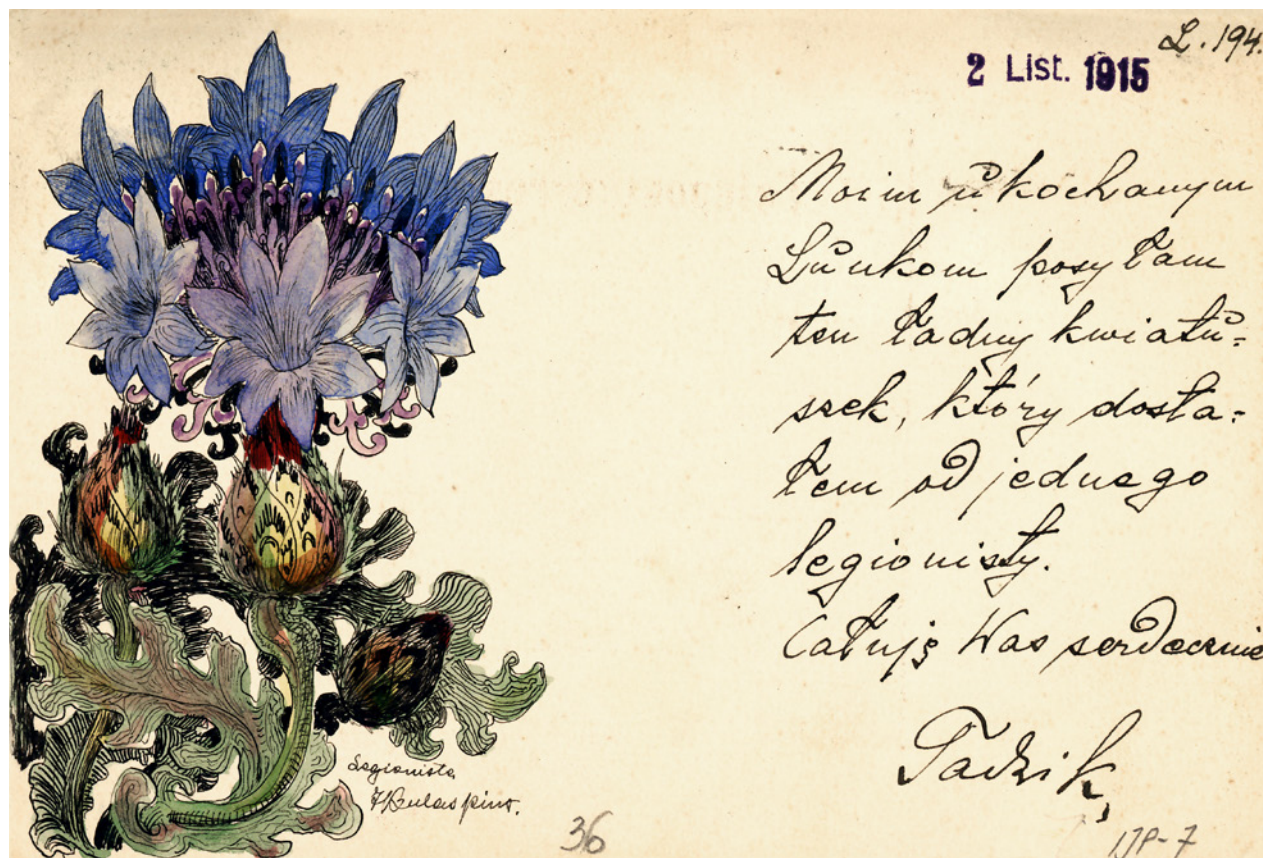 L. 194.
2 List. 1915
Moim ukochanym
Lunkom posyłam
ten ładny kwiatu=
szek, który dosta=
łem od jednego
legionisty.
Całuję Was serdecznie
Tadzik,
Legionista
pinx.
36